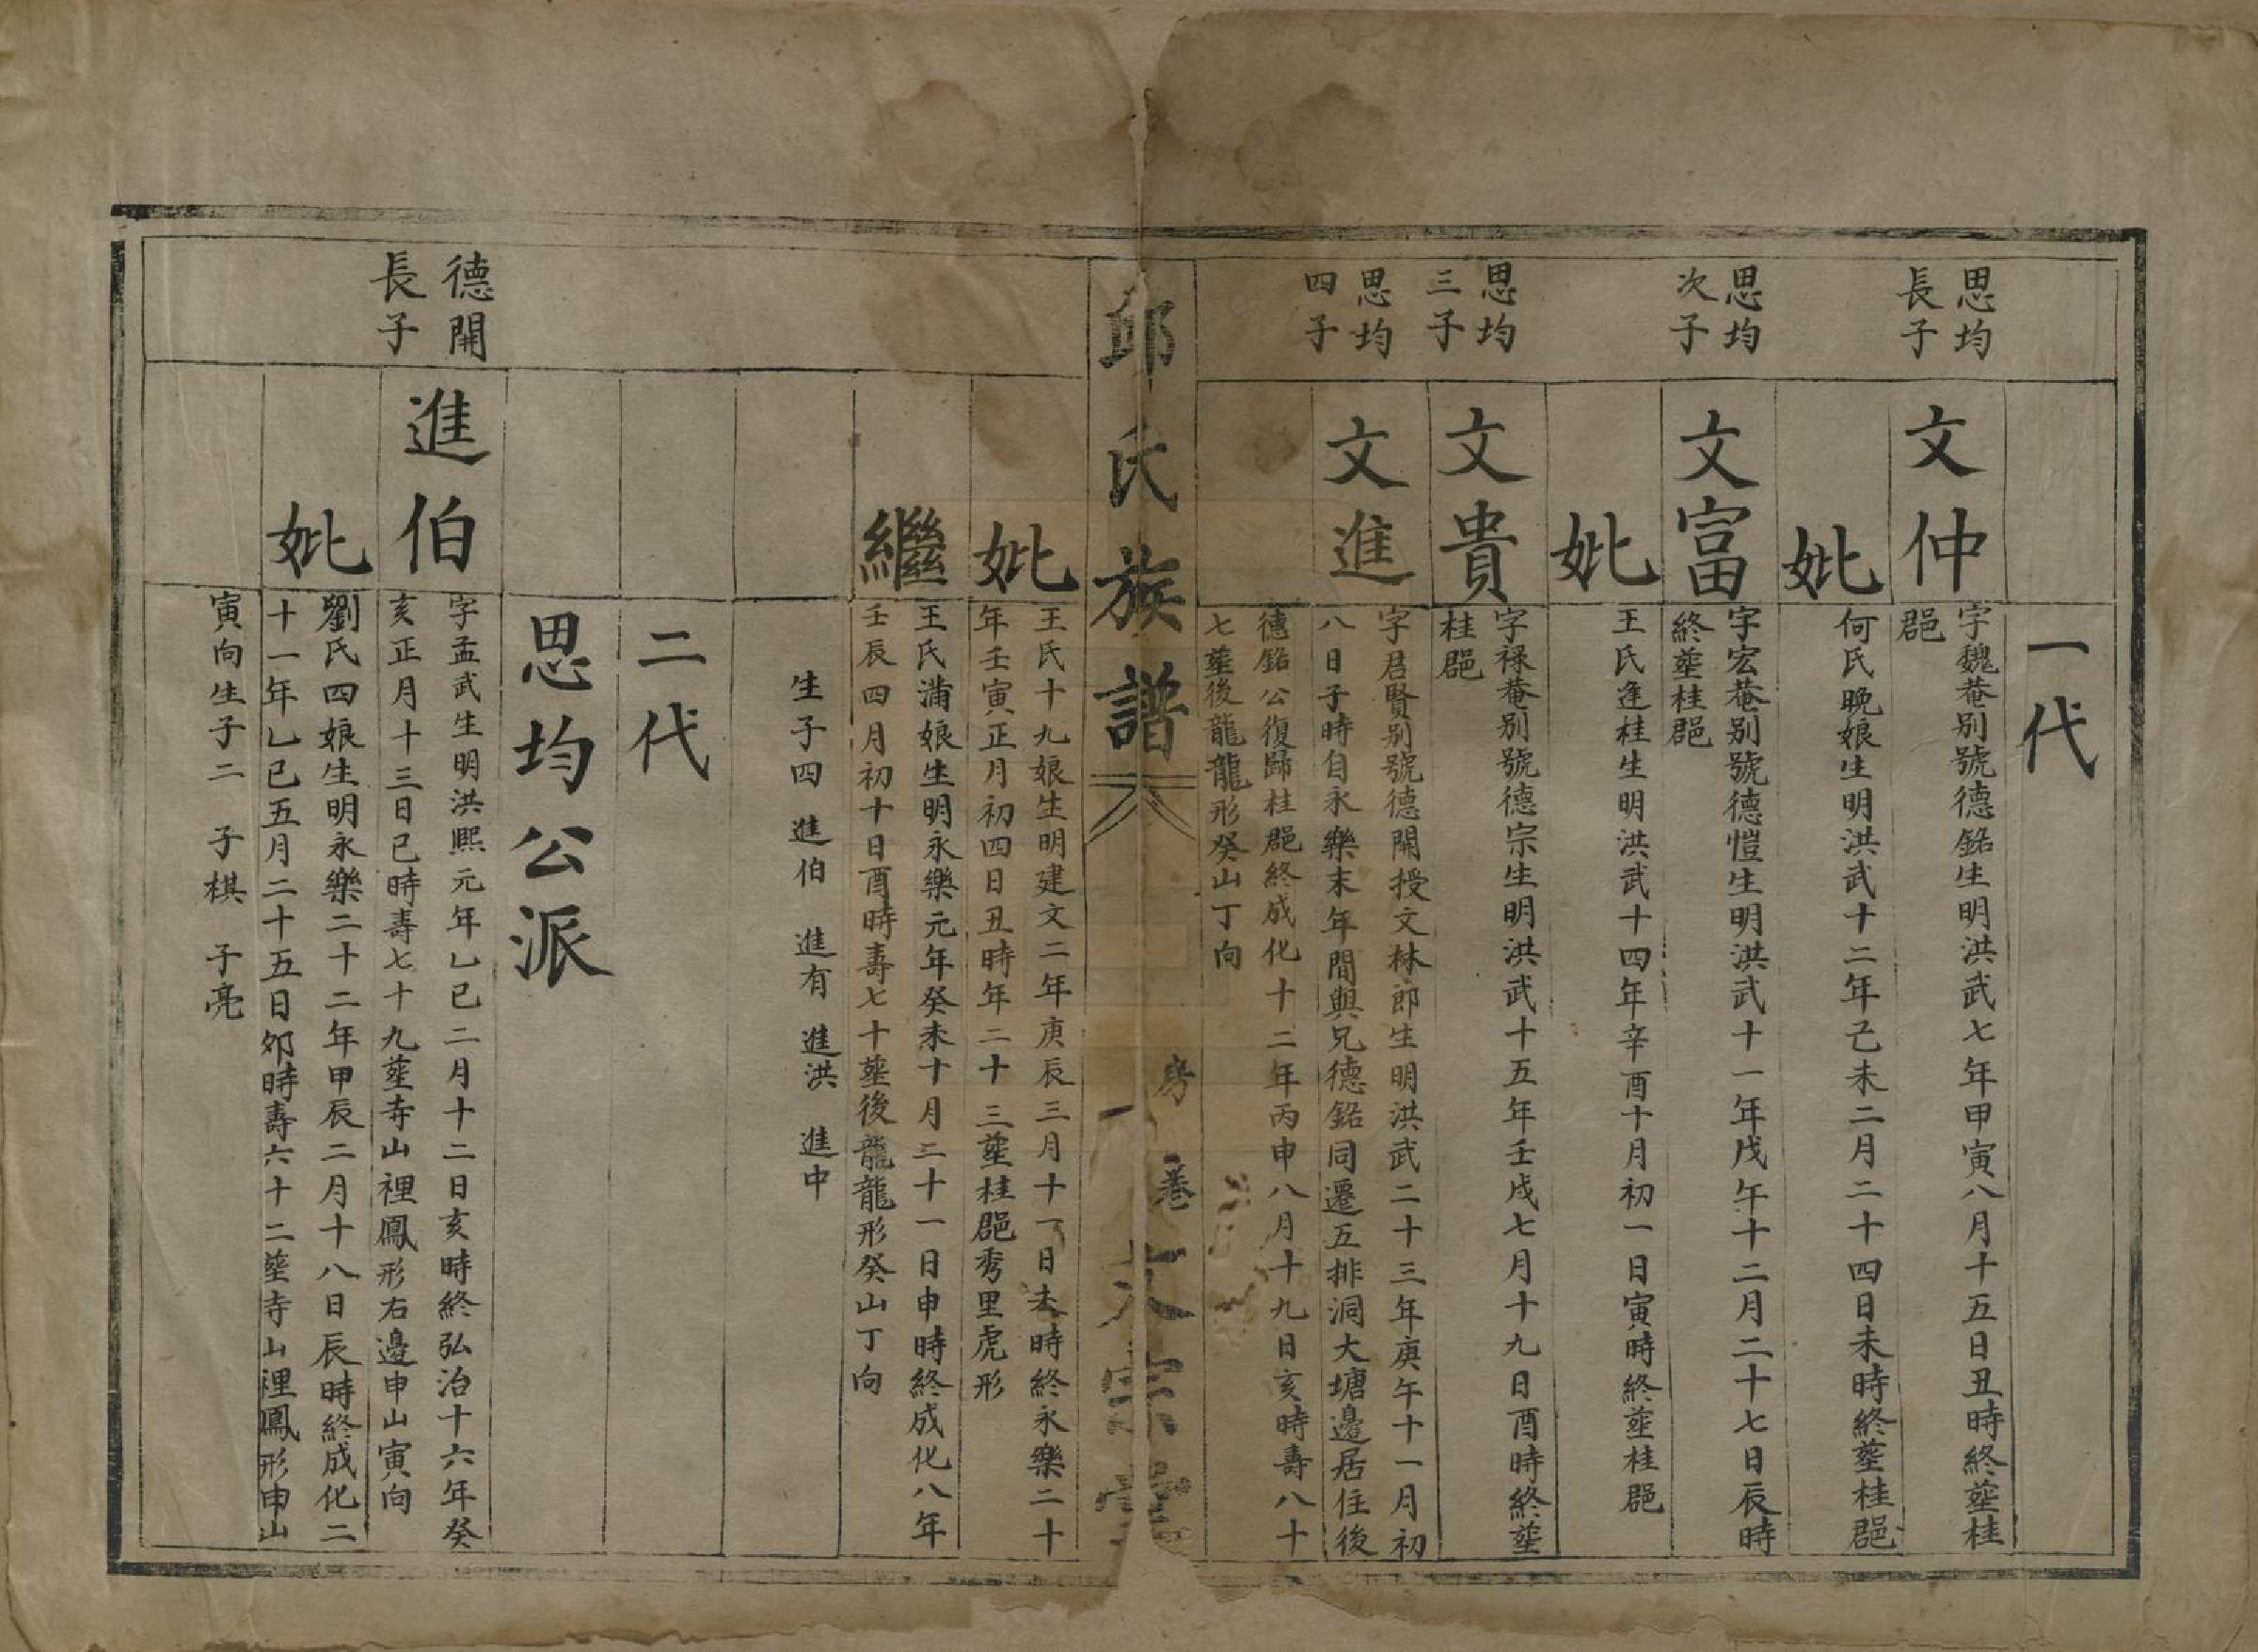 一代
思均
長子
文仲
字魏菴别號德銘生明洪武七年甲寅八月十五日丑時終塟桂
郶
妣
何氏晚娘生明洪武十二年己未二月二十四日未時終塟桂郶
思均
次子
文富
字宏菴别號德愷生明洪武十一年戊午十二月二十七日辰時
終塟桂郶
妣
王氏逢桂生明洪武十四年辛酉十月初一日寅時終塟桂郶
思均
三子
文貴
字禄菴别號德宗生明洪武十五年壬戌七月十九日酉時終塟
桂郶
思均
四子
文進
字君賢别號德開授文林郎生明洪武二十三年庚午十一月初
八日子時自永樂末年間與兄德銘同遷五排洞大塘邊居住後
德銘公復歸桂郶終成化十二年丙申八月十九日亥時壽八十
七塟後龍龍形癸山丁向
邱氏族譜
房
卷
大宗堂
妣
王氏十九娘生明建文二年庚辰三月十一日未時終永樂二十
年壬寅正月初四日丑時年二十三塟桂郶秀里虎形
繼
王氏蒲娘生明永樂元年癸未十月二十一日申時終成化八年
壬辰四月初十日酉時壽七十塟後龍龍形癸山丁向
生子四 進伯 進有 進洪 進中
二代
思均公派
德開
長子
進伯
字孟武生明洪熙元年乙巳二月十二日亥時終弘治十六年癸
亥正月十三日巳時壽七十九塟寺山裡鳳形右邊申山寅向
妣
劉氏四娘生明永樂二十二年甲辰二月十八日辰時終成化二
十一年乙巳五月二十五日夘時壽六十二塟寺山裡鳳形申山
寅向生子二 子棋 子亮